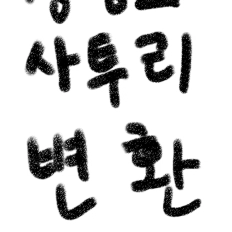 사투리
변환